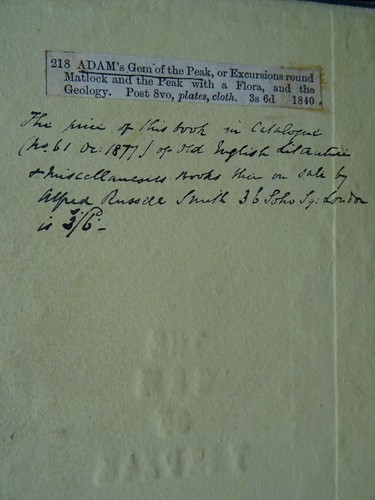 218 ADAM's Gem of the Peak, or Excursions round
Matlock and the Peak with a Flora, and the
Geology. Post 8vo, plates, cloth. 3s 6d 1840
The price of this book in Catalogue
(No. 61 Oc: 1877) of Old English Literature
& Miscellaneous Books then on sale by
Alfred Russell Smith 36 Soho Sq: London
is 3/6-
THE
GEM
OF